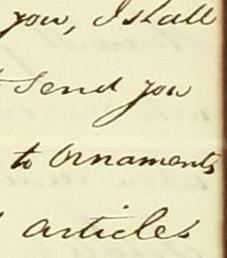 you, I shall
send you
to ornaments
articles